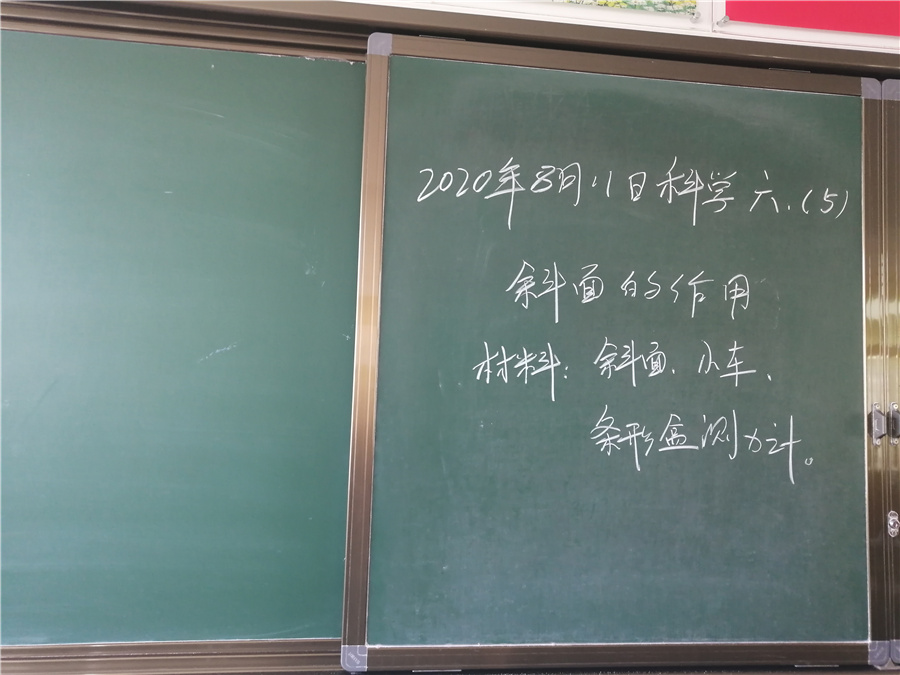 2020年8月11日科学六.(5)
斜面的作用
材料：斜面、小车、
条形盒测力计。